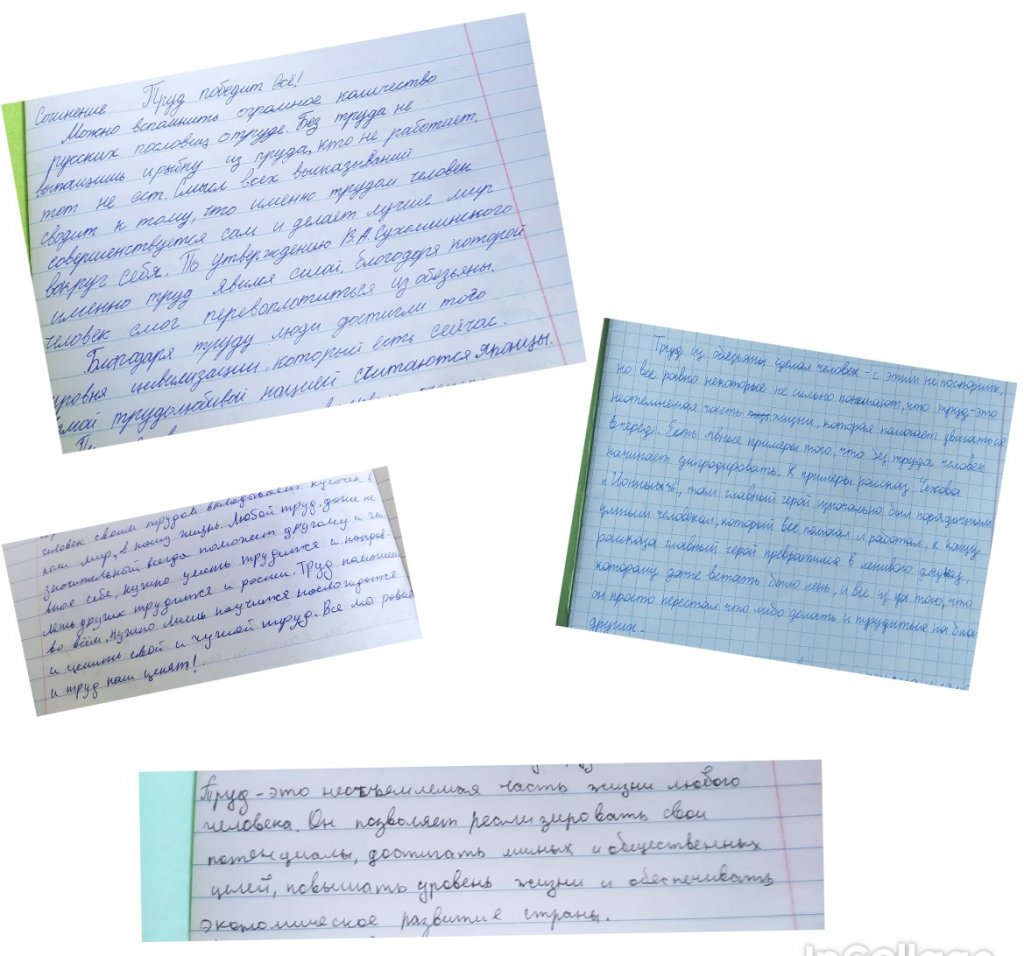 Сочинение Труд победит всё!
Можно вспомнить огромное количество
русских пословиц о труде. Без труда не
вытащишь и рыбку из пруда, кто не работает,
тот не ест. Смысл всех высказываний
сводит к тому, что именно трудом человек
совершенствуется сам и делает лучше мир
вокруг себя. По утверждению В.А. Сухомлинского
именно труд явился силой, благодаря которой
человек смог перевоплотиться из обезьяны.
Благодаря труду люди достигли того
уровня цивилизации, который есть сейчас.
самой трудолюбивой нацией считаются Японцы.
Труд из обезьяны сделал человек - с этим не поспоришь,
но все равно некоторые не сильно понимают, что труд - это
неотемлемая часть жизни, которая помогает двигаться
вперед. Есть явные примеры того, что без труда человек
начинает диградировать. К примеру рассказ Чехова
"Ионыч", там главный герой изначально был порядочным
умным человеком, который все помогал и работал, к концу
рассказа главный герой превратился в ленивого
которому даже встать было лень, и все из за того, что
он просто перестал что либо делать и трудиться на благо
других.
человек своим трудом вкладывает кусочек в
наш мир, в нашу жизнь. Любой труд, даже не
значительной всегда поможет другому и
вное себе, нужно уметь трудится и
лень других трудится и россии. Труд поможет
во всём, нужно лишь научится наслаждатся
и ценить свой и чужой труд. Все мы
и труд наш ценят!
Труд - это неотъемлемая часть жизни любого
человека. Он позволяет реализировать свои
потенциалы, достигать личных и общественных
целей, повышать уровень жизни и обеспечивать
экономическое развитие страны.
InCollage